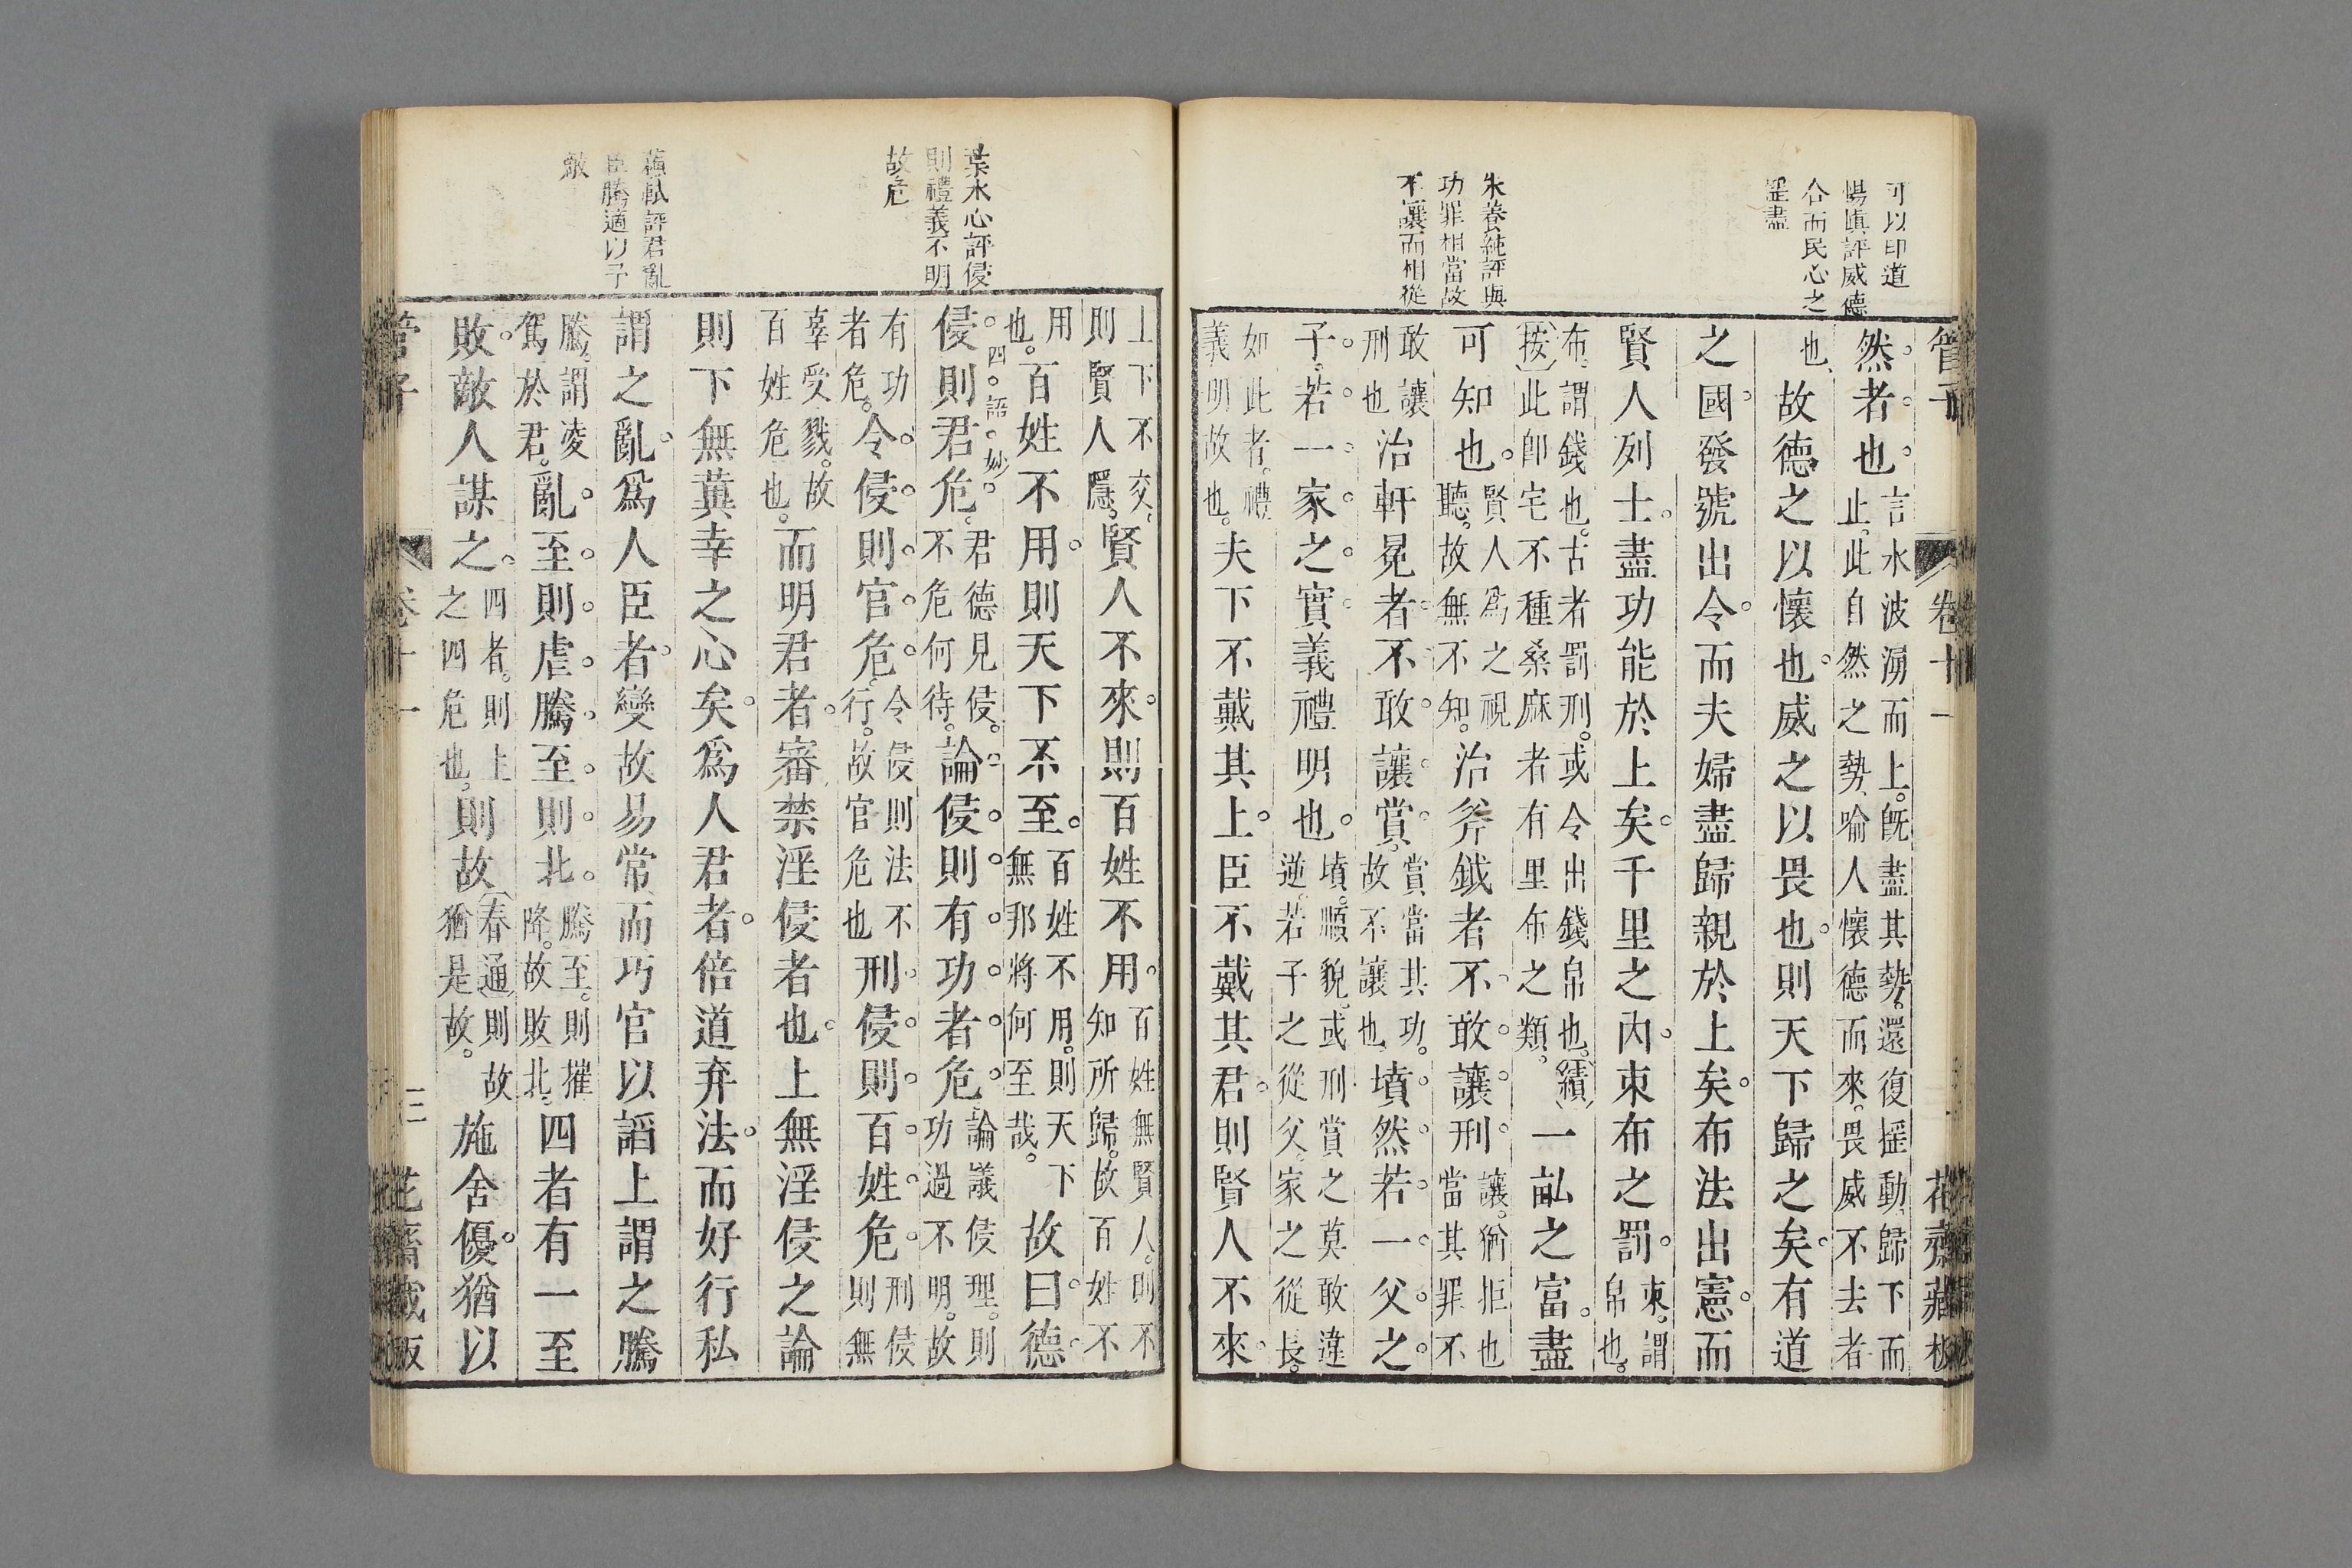 可以印道
楊慎評威德
合而民心之
盡
朱養純評與
功罪相當故
不讓而相從
管子 卷十一 花齋藏板
然。者。也。言水波湧而上。既盡其勢。還復搖動歸下而止。此自然之勢喻人懷德而來。畏威不去者
也、故德之以懷也。威之以畏也。則天下歸之矣。有道
之國。發號出令。而夫婦盡歸親於上矣。布法出憲。而
賢人列士。盡功能於上矣。千里之內。束布之罰。束。謂帛也。
布。謂錢也。古者罰刑。或令出錢帛也。(續)(按)此卽宅不種桑麻者有里布之類。一畝之富。盡
可知也。賢人爲之視聽。故無不知。治斧鉞者。不。敢。讓。刑。讓。猶拒也當其罪不
敢讓刑也治軒冕者。不。敢。讓。賞。賞當其功。故不讓也墳。然。若。一。父。之。
子。若。一。家。之。實。義禮明也。墳。順貌。或刑賞之莫敢違逆。若子之從父。家之從長。
如此者。禮義明故也。夫下不戴其上。臣不戴其君。則賢人不來。
葉水心評侵
則禮義不明
故危
蘇軾評君亂
臣騰適以子
敵
上下不交。則賢人隱。賢人不來。則百姓不用。百姓無賢人。則不知所歸。故百姓不
用也。百姓不用。則天下不至。百姓不用。則天下無那將何至哉。故曰。德。
四語妙
侵。則君危。君德見侵。不危何待。論。侵。則。有。功。者。危。論議侵理。則功過不明。故
有功者危。令。侵。則。官。危。令侵則法不行。故官危也刑。侵。則。百。姓。危。刑侵則無
辜受戮。故百姓危也。而明君者。審禁淫侵者也。上無淫侵之論
則下無冀幸之心矣。爲人君者。倍道弃法。而好行私
謂之亂。爲人臣者。變故易常而巧官以謟上謂之騰
騰。謂凌駕於君。亂。至。則。虐。騰。至。則。北。騰至。則摧降。故敗北。四者有一至
敗。敵人謀之。四者。則上之四危也。則故(春通)則故猶是故。施舍優。猶以
管子 卷十一 三 花齋藏板